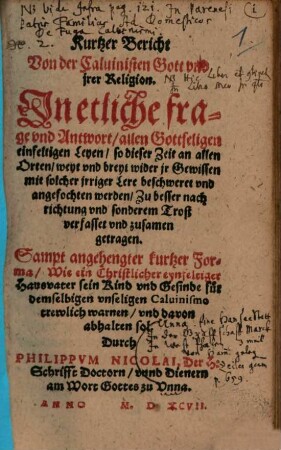 Nō. Vide Infra pag. 121. In Parænesi
Patris Familias, Ad Domesticos
De Fuga Calvinismi
1.
2.
Kurtzer Bericht
Von der Caluinisten Gott vnd
jrer Religion.
In etliche fra-
ge vnd Antwort / allen Gottseligen
einfeltigen Leyen / so dieser Zeit an allen
Orten / weyt vnd breyt wider jr Gewissen
mit solcher jrriger Lere beschweret vnd
angefochten werden / Zu besser nach
richtung vnd sonderem Trost
verfasset vnd zusamen
getragen.
Sampt angehengter kurtzer For-
ma / Wie ein Christlicher eynfeltiger
Hausvater sein Kind vnd Gesinde für
demselbigen vnseligen Caluinismo
trewlich warnen / vnd davon
abhalten sol.
Unna
Durch
PHILIPPVM NICOLAI, Der H.
Schrifft Doctorn / vnnd Dienern
am Wort Gottes zu Vnna.
p. 659
ANNO M. D. XCVII.